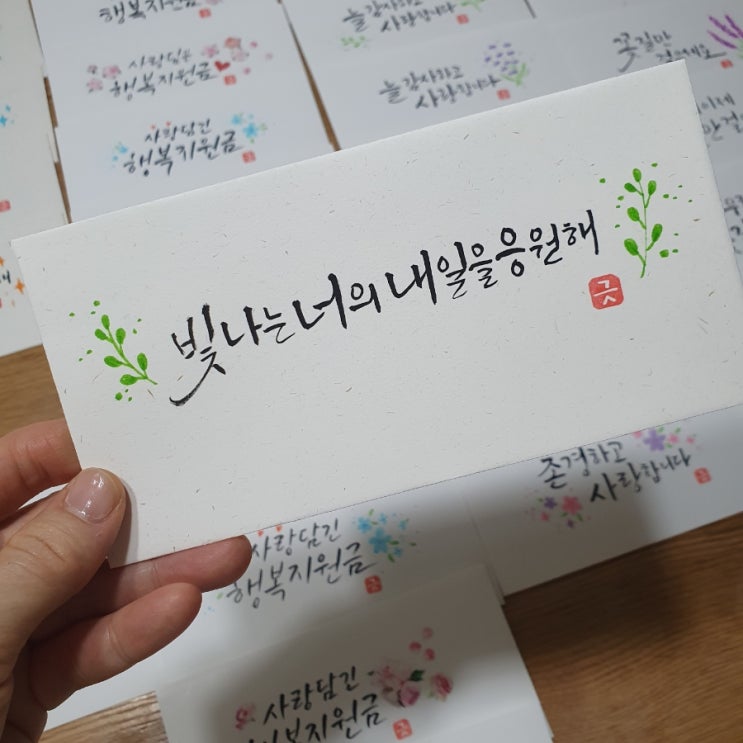 행복지원금
늘 감사하고
사랑합니다
사랑담은
행복지원금
늘 감사하고
사랑합니다
꽃길만
걸으세요
사랑담긴
행복지원금
이제
빛나는 너의 내일을 응원해
긋
존경하고
사랑합니다
사랑담긴
행복지원금
사랑담긴
행복지원금